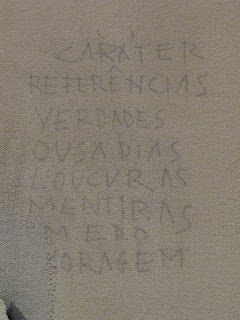 CARÁTER
REFERÊNCIAS
VERDADES
OUSADIAS
LOUCURAS
MENTIRAS
MEDO
CORAGEM